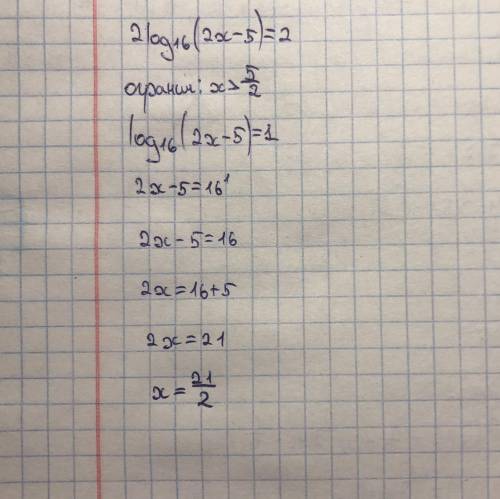 2log₁₆(2x-5)=2
огранич: x>5/2
log₁₆(2x-5)=1
2x-5=16¹
2x-5=16
2x=16+5
2x=21
x=21/2